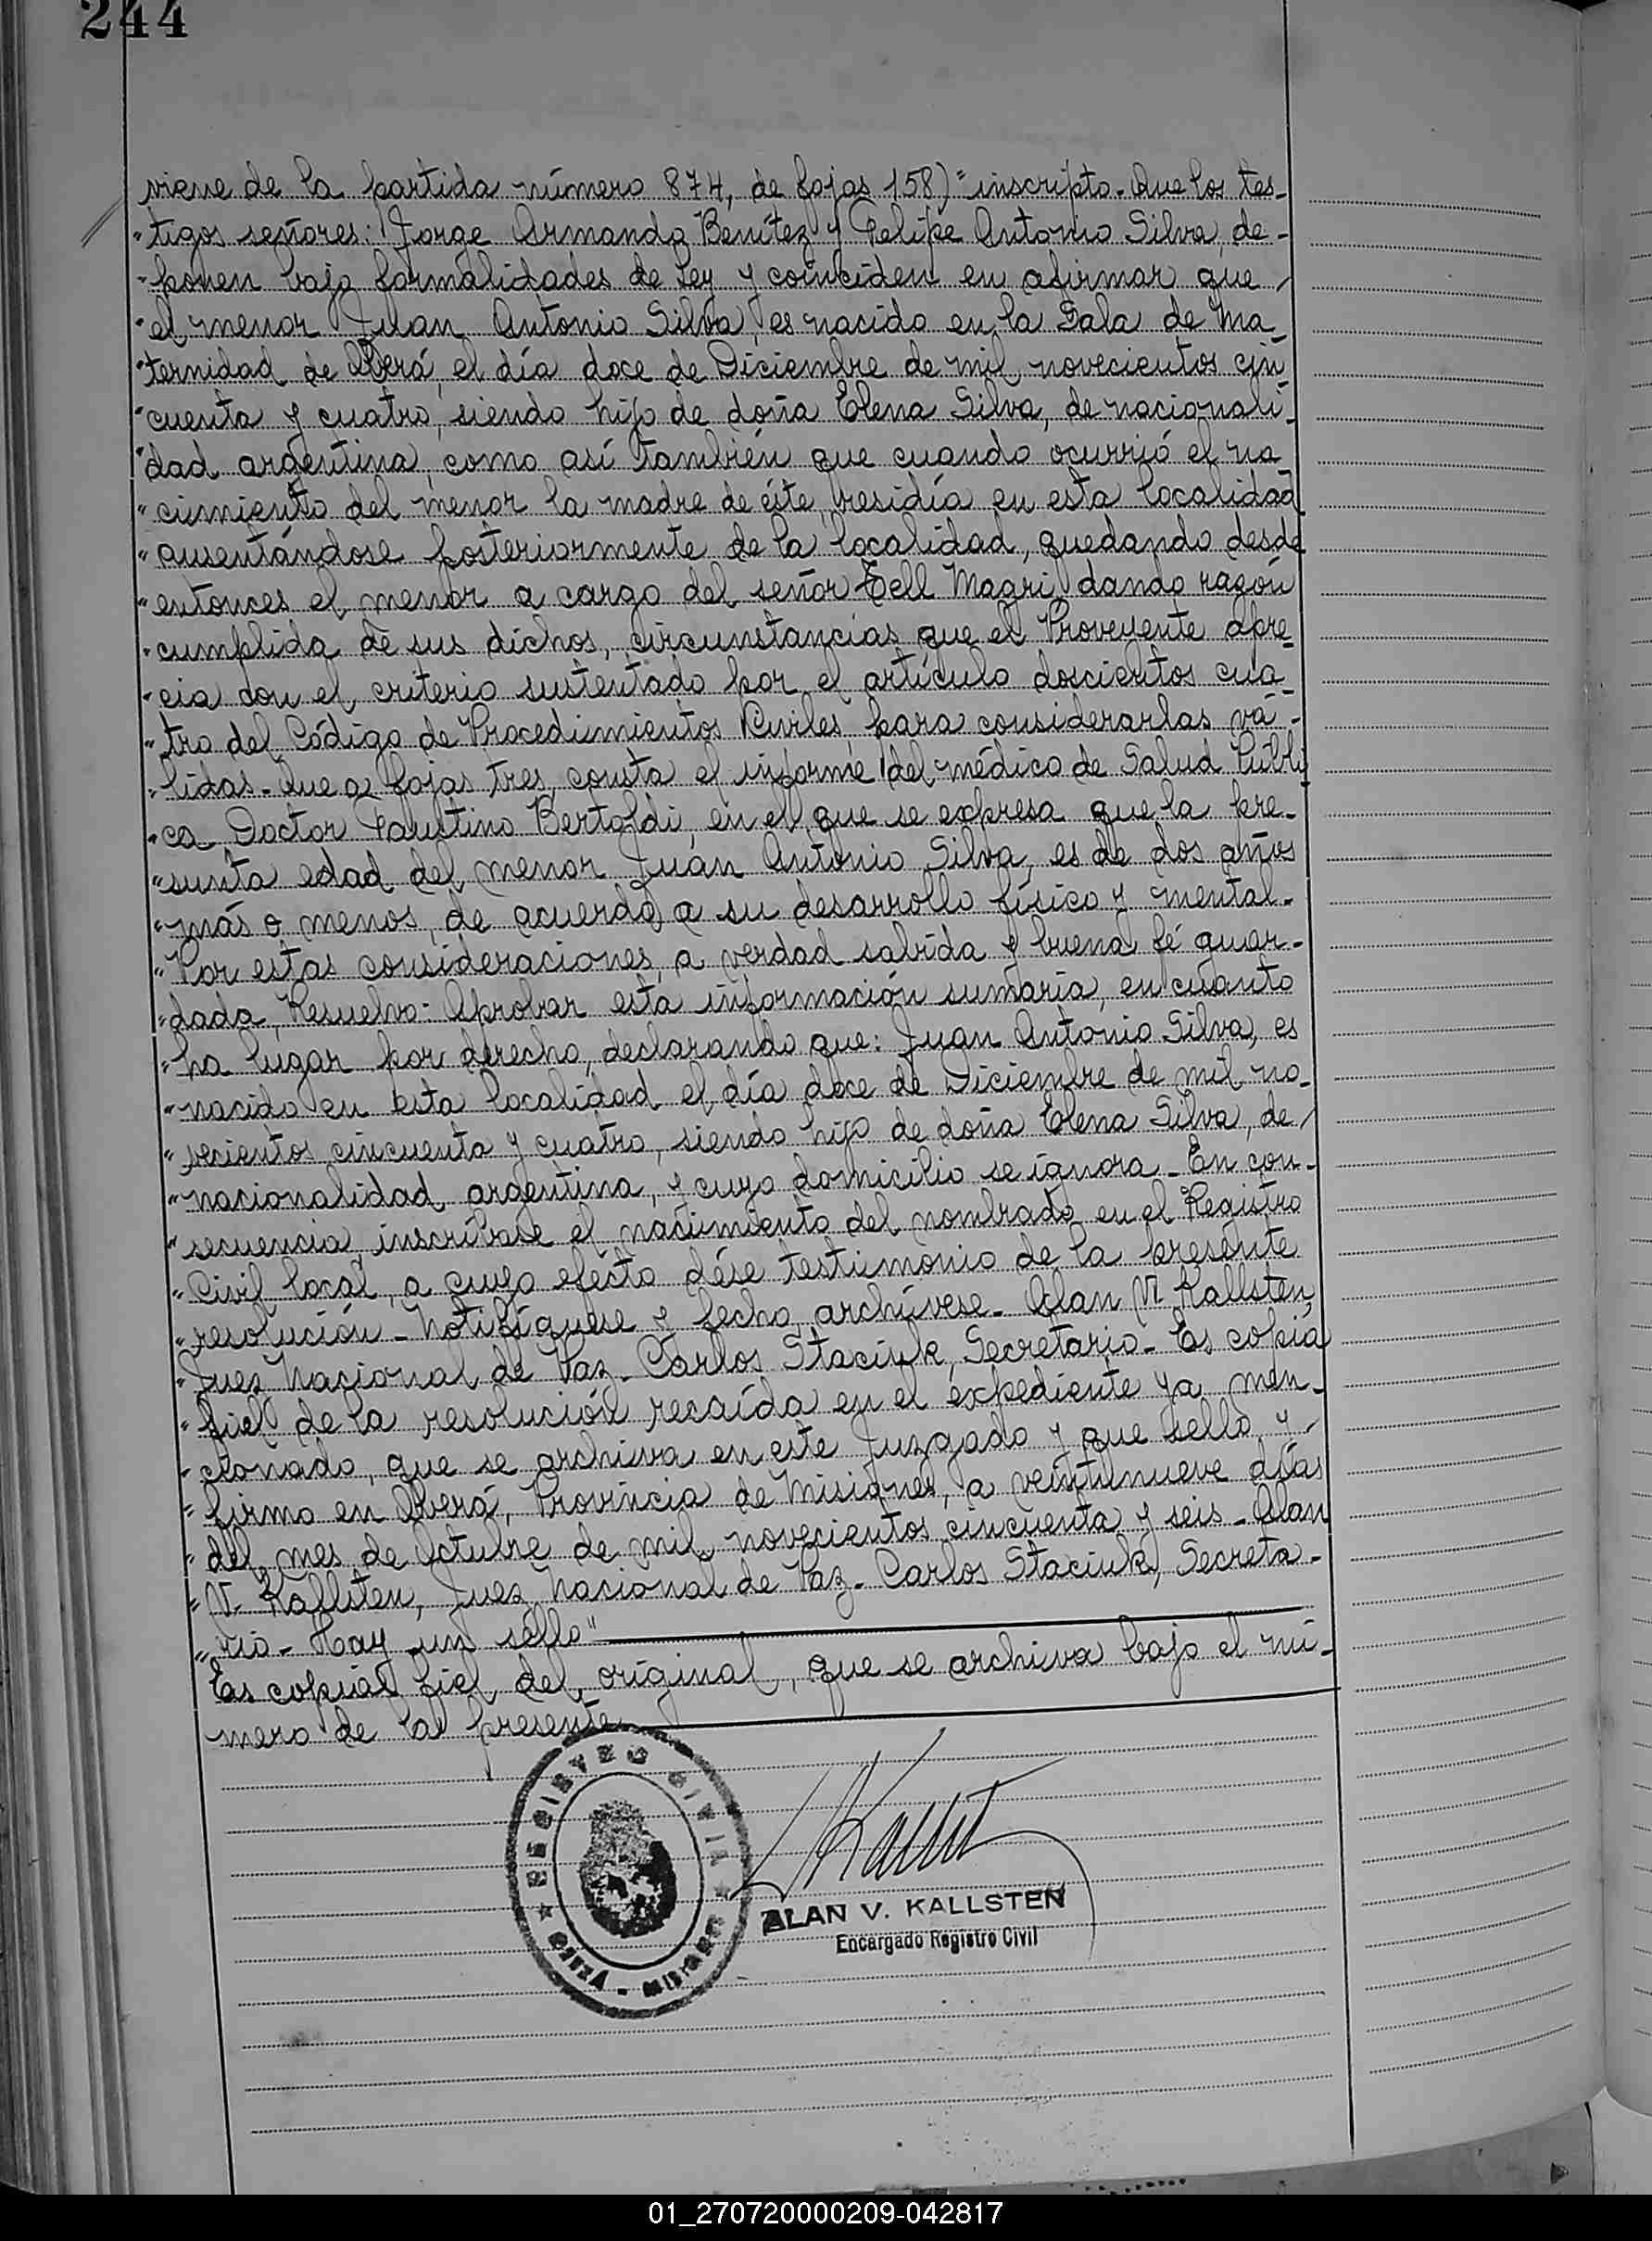 244
viene de la partida número 874, de fojas 158) " inscripto. Que los tes-
" tigos señores: Jorge Armando Benítez y Felipe Antonio Silva, de-
" ponen bajo formalidades de ley y coinciden en afirmar que /
" el menor Juan Antonio Silva, es nacido en la Sala de Ma
" ternidad de Oberá, el día doce de Diciembre de mil novecientos cin
" cuenta y cuatro, siendo hijo de doña Elena Silva, de nacionali-
" dad argentina, como así también que cuando ocurrió el na
" cimiento del menor la madre de éste, residía en esta localidad
" ausentándose posteriormente de la localidad, quedando desde
" entonces el menor a cargo del señor Tell Magri, dando razón
" cumplida de sus dichos, circunstancias que el Proveyente apre-
" cia con el criterio sustentado por el artículo doscientos cua-
" tro del Código de Procedimientos Civiles, para considerarlas vá-
" lidas. Que a fojas tres, consta el informe del médico de Salud Públi
" ca Doctor Faustino Bertoldi, en el que se expresa que la pre-
" sunta edad del menor Juan Antonio Silva, es de dos años
" más o menos, de acuerdo a su desarrollo físico y mental.
" Por estas consideraciones, a verdad sabida y buena fé guar-
" dada, Resuelvo: Aprobar esta información sumaria, en cuanto
" ha lugar por derecho, declarando que: Juan Antonio Silva, es
" nacido en esta localidad el día doce de Diciembre de mil no-
" vecientos cincuenta y cuatro, siendo hijo de doña Elena Silva, de /
" nacionalidad argentina, y cuyo domicilio se ignora. En con-
" secuencia, inscríbase el nacimiento del nombrado en el Registro
" Civil local, a cuyo efecto dése testimonio de la presente
" resolución. Notifíquese y fecho, archívese. Alan V. Kallsten,
" Juez Nacional de Paz. Carlos Staciuk, Secretario. Es copia
" fiel de la resolución recaída en el expediente ya men-
" cionado, que se archiva en este Juzgado y que sello y /
" firmo en Oberá, Provincia de Misiones, a veintinueve días
" del mes de Octubre de mil novecientos cincuenta y seis. Alan
" V. Kallsten, Juez Nacional de Paz. Carlos Staciuk, Secreta-
" rio. Hay un sello"
Es copia fiel del original, que se archiva bajo el nú-
mero de la presente
REGISTRO CIVIL
ALAN V. KALLSTEN
Encargado Registro Civil
01_270720000209-042817